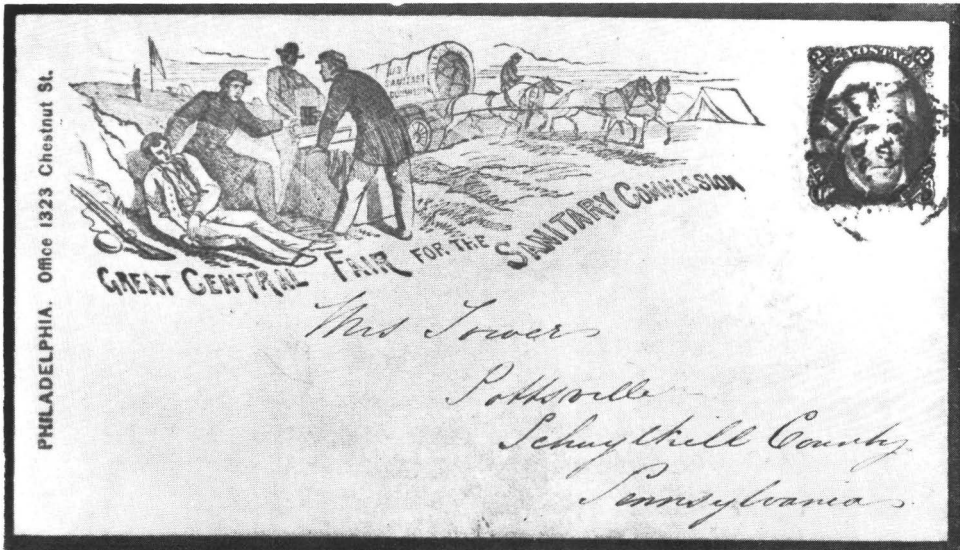 PHILADELPHIA. Office 1323 Chestnut St.
U.S.
SANITARY
COMMISSION
GREAT CENTRAL FAIR FOR THE SANITARY COMMISSION
Mrs Tower
Pottsville
Schuylkill County
Pennsylvania